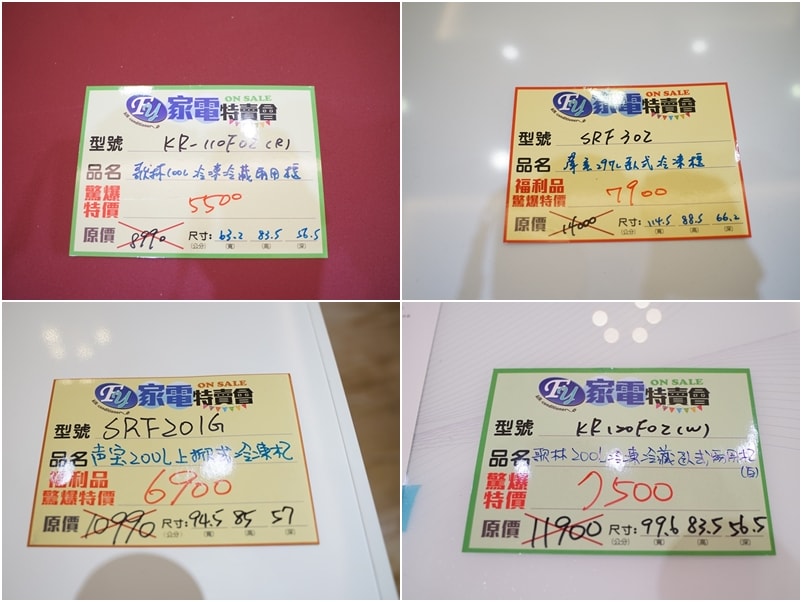 FU 家電特賣會 ON SALE
型號 KR-110F02(R)
品名 歌林100L冷凍冷藏兩用櫃
驚爆特價 5500
原價 8990 尺寸: 63.2 83.5 56.5
(公分) (寬) (高) (深)
FU 家電特賣會 ON SALE
型號 SRF302
品名 297L臥式冷凍櫃
福利品驚爆特價 7900
原價 14000 尺寸: 114.5 88.5 66.2
(公分) (寬) (高) (深)
FU 家電特賣會 ON SALE
型號 SRF201G
品名 声宝200L上掀式冷凍柜
福利品驚爆特價 6900
原價 10990 尺寸: 94.5 85 57
(公分) (寬) (高) (深)
FU 家電特賣會 ON SALE
型號 KR120F02(W)
品名 歌林200L冷凍冷藏臥式兩用柜(白)
驚爆特價 7500
原價 11900 尺寸: 99.6 83.5 56.5
(公分) (寬) (高) (深)